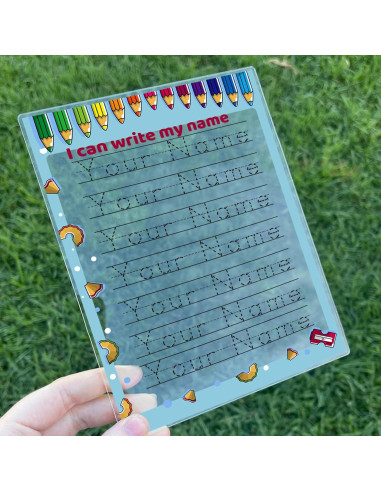 I can write my name
Your Name
Your Name
Your Name
Your Name
Your Name
Your Name
Your Name